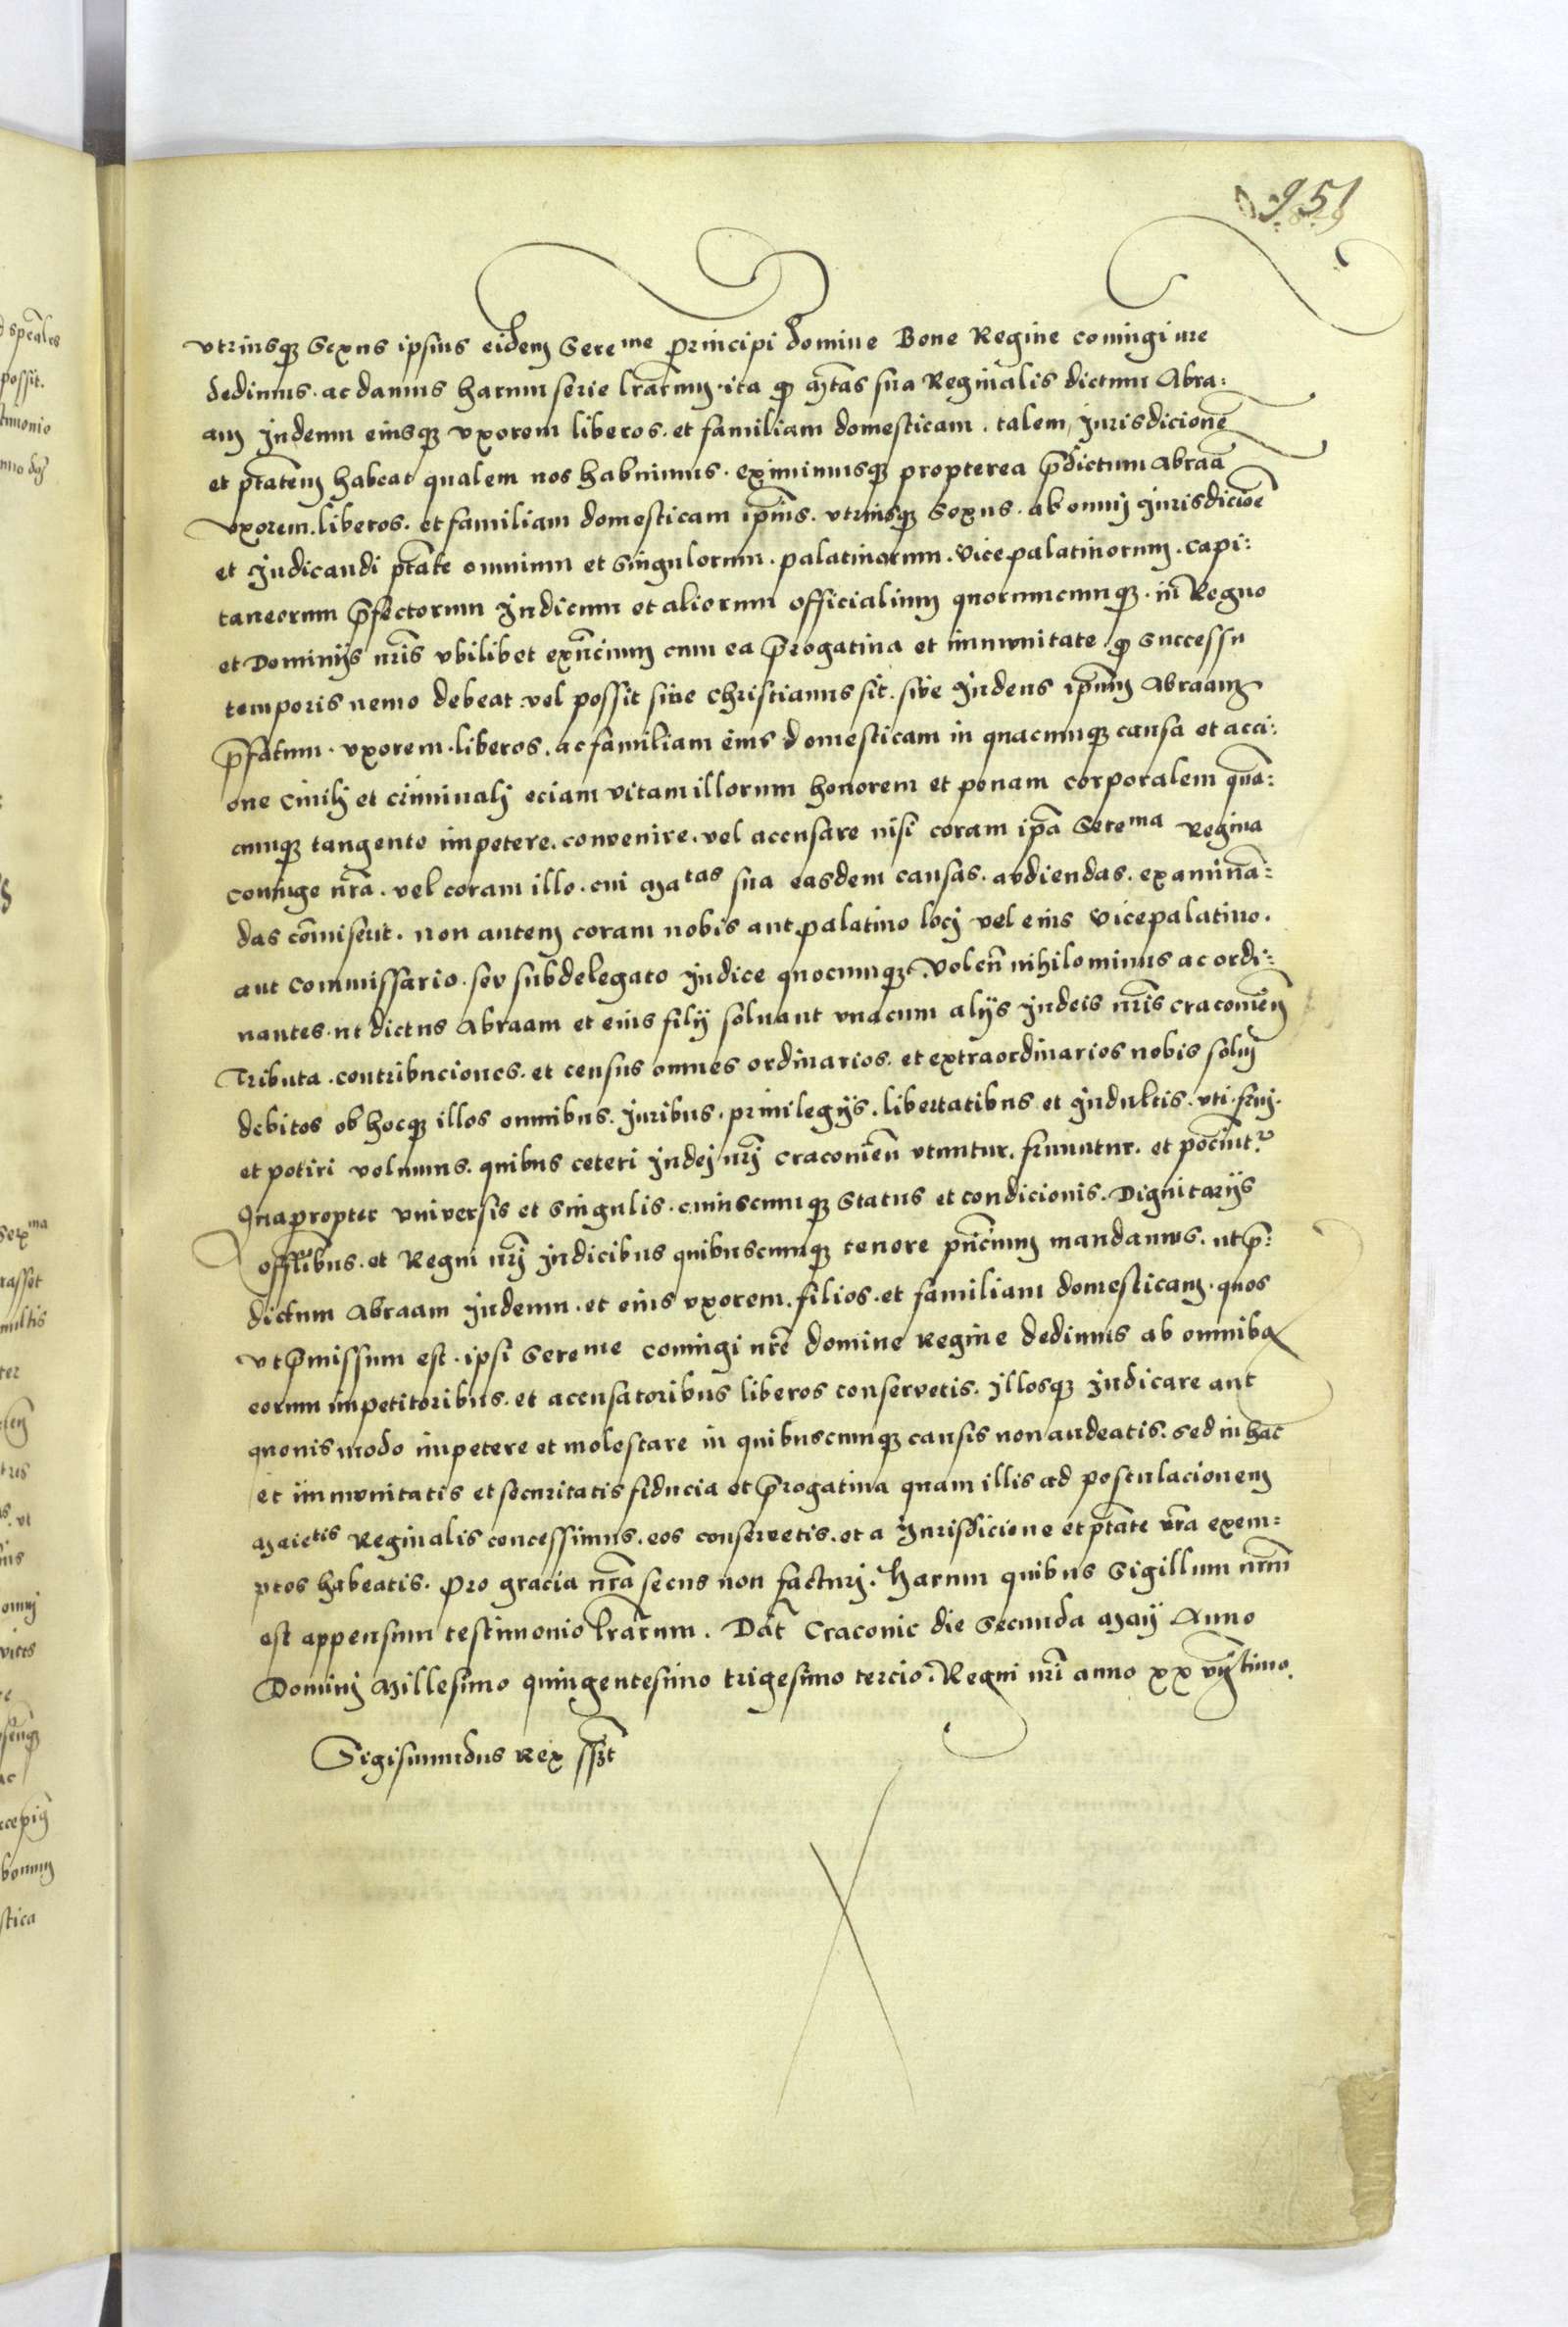 951
vtriusq; Sexus ipsius eidem Sereme Principi domine Bone Regine coniugi nre
dedimus. ac damus harum serie lrarum. ita q; Mtas sua Reginalis dictum Abra:
am Judeum eiusq; vxorem liberos. et familiam domesticam. talem Jurisdicionē
et ptatem habeat qualem nos habuimus. eximimusq; propterea p̄dictum Abraā
vxorem. liberos. et familiam domesticam ip̄ius. vtriusq; Sexus. ab omnj Jurisdicioē
et Judicandi ptāte omnium et Singulorum. palatinorum. Vicepalatinorum. Capi:
taneorum p̄fectorum Judicum et aliorum officialium quorumcumq;. in Regno
et Dominijs nr̄is vbilibet exn̄cium cum ea p̄rogatiua et immunitate q; Successu
temporis nemo debeat vel possit siue Christianus sit. siue Judeus ip̄um Abraam
p̄fatum. vxorem. liberos. ac familiam eius domesticam in quacumq; causa et acci:
one Ciuilj et criminalj eciam vitam illorum honorem et penam corporalem quā:
cumq; tangente impetere. convenire. vel accusare nisi coram ip̄a Serema Regina
coniuge nr̄a. vel coram illo. cui Matas sua easdem causas. avdiendas. examinā:
das com̄iserit. non autem coram nobis aut palatino locj vel eius Vicepalatino.
aut Commissario. sev subdelegato Judice quocumq;. Volen̄ nihilominus ac ordi:
nantes. ut dictus Abraam et eius filij soluant vnacum alijs Judeis nr̄is cracouien̄
Tributa. contribuciones. et census omnes ordinarios. et extraordinarios nobis soluj
debitos ob hocq; illos omnibus. Juribus. priuilegijs. libertatibus et Jndultis. vti. fruj.
et potiri volumus. quibus ceteri Judej nr̄j Cracouien̄ vtuntur. fruuntur. et pociūt.
Quapropter vniversis et Singulis. cuiuscumq; Status et condicionis. Dignitarijs
offlibus. et Regni nr̄j Judicibus quibuscumq; tenore pn̄cium mandamus. ut p̄:
dictum Abraam Judeum. et eius vxorem. filios. et familiam domesticam. quos
vt p̄missum est. ipsi Sereme coniugi nr̄e domine Regine dedimus ab omnibꝫ
eorum impetitoribus. et accusatoribus liberos conservetis. Jllosq; Judicare aut
quouis modo impetere et molestare in quibuscumq; causis non audeatis. Sed in hac
et immunitatis et securitatis fiducia et p̄rogatiua quam illis ad postulacionem
Maietis Reginalis concessimus. eos conservetis. et a Jurisdicione et ptāte vr̄a exem=
ptos habeatis. Pro gracia nr̄a secus non facturj. Harum quibus Sigillum nr̄um
est appensum testimonio lrarum. Dat̄ Cracouie die Secunda Maij Anno
Dominj Millesimo quingentesimo trigesimo tercio. Regni nr̄i anno xxvijtimo.
Sigismundus Rex sst